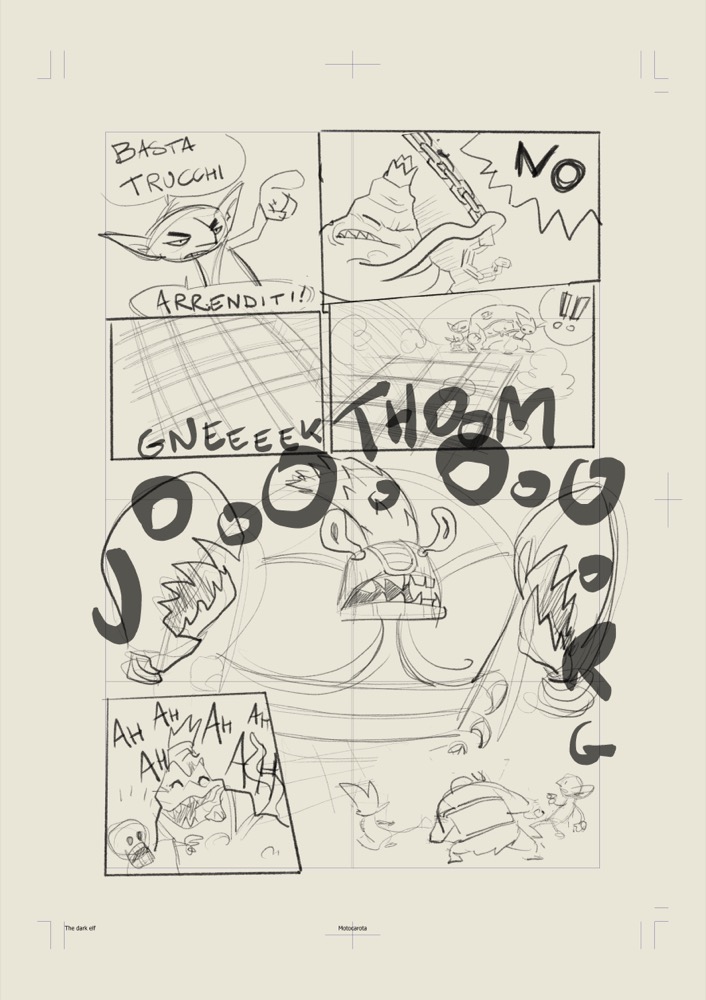 BASTA
TRUCCHI
ARRENDITI!
NO
GNEEEEK
!!
THOOM
JOOOOOOOORG
AH AH AH AH
AH AHH
The dark elf
Motocarota